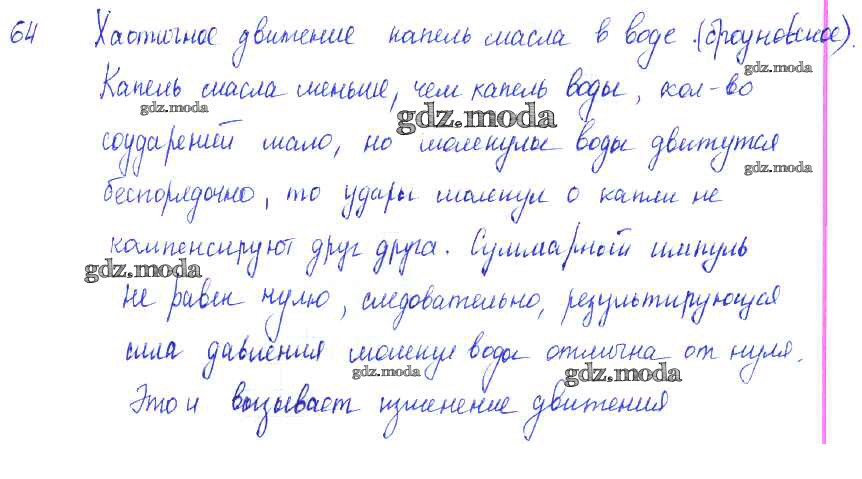 64 Хаотичное движение капель масла в воде. (броуновское).
Капель масла меньше, чем капель воды, кол-во
соударений мало, но молекулы воды движутся
беспорядочно, то удары молекул о капли не
компенсируют друг друга. Суммарный импуль
не равен нулю, следовательно, результирующая
сила давления молекул воды отлична от нуля.
Это и вызывает изменение движения
gdz.moda
gdz.moda
gdz.moda
gdz.moda
gdz.moda
gdz.moda
gdz.moda